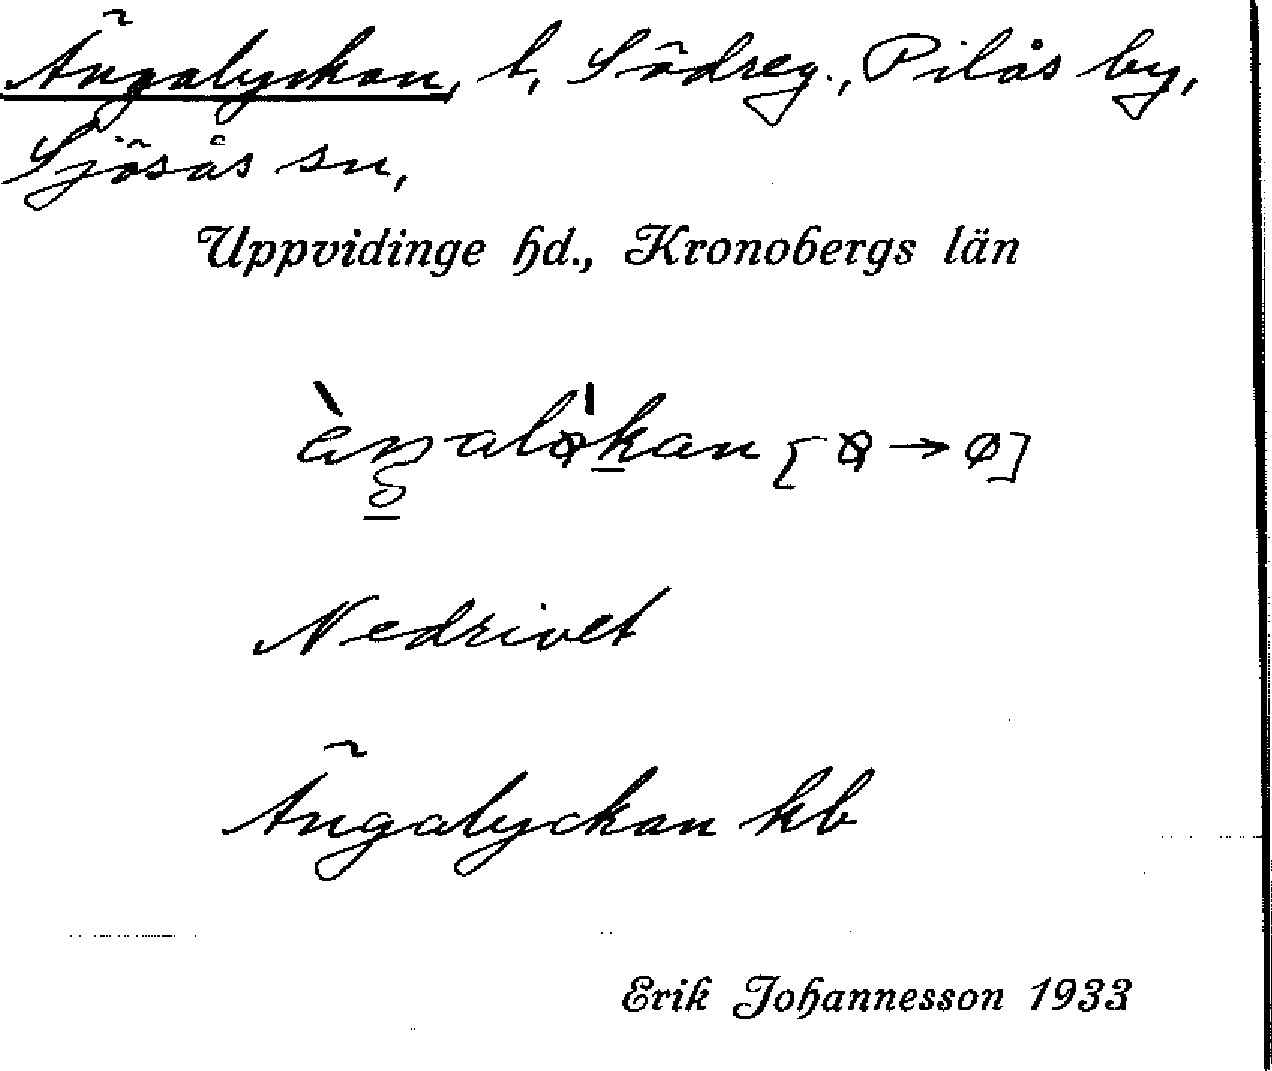 Ängalyckan, t, Södreg., Pilås by,
Sjösås sn,
Uppvidinge hd., Kronobergs län
Nedrivet
Ängalyckan kb
Erik Johannesson 1933